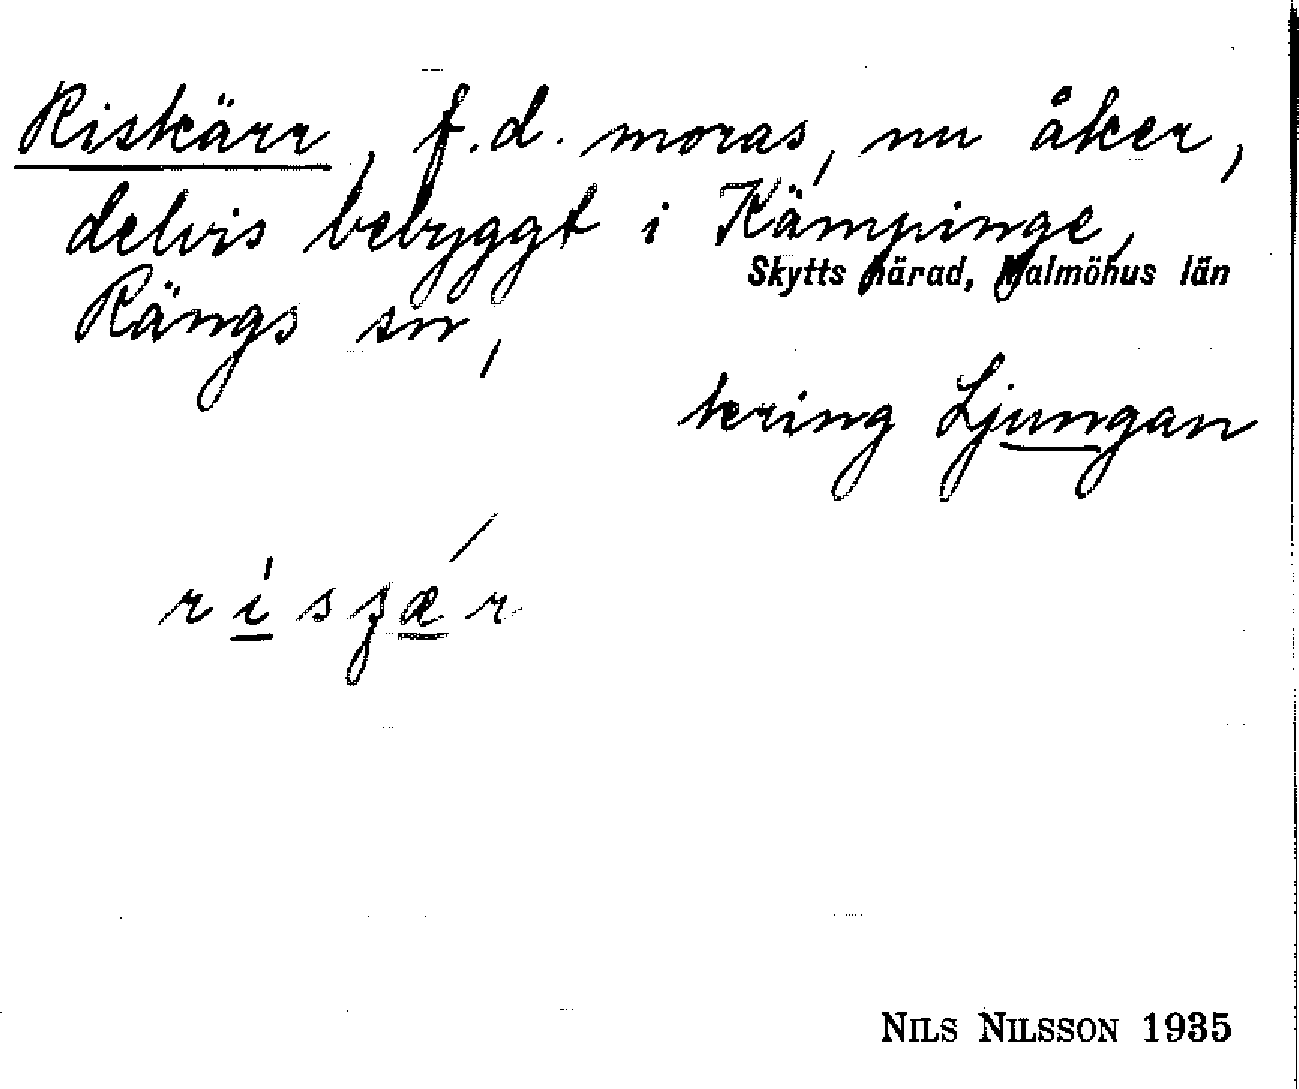 Riskärr, f.d. moras, nu åker,
delvis bebyggt i Kämpinge,
Skytts härad, Malmöhus län
Rängs sn,
kring Ljungan
NILS NILSSON 1935